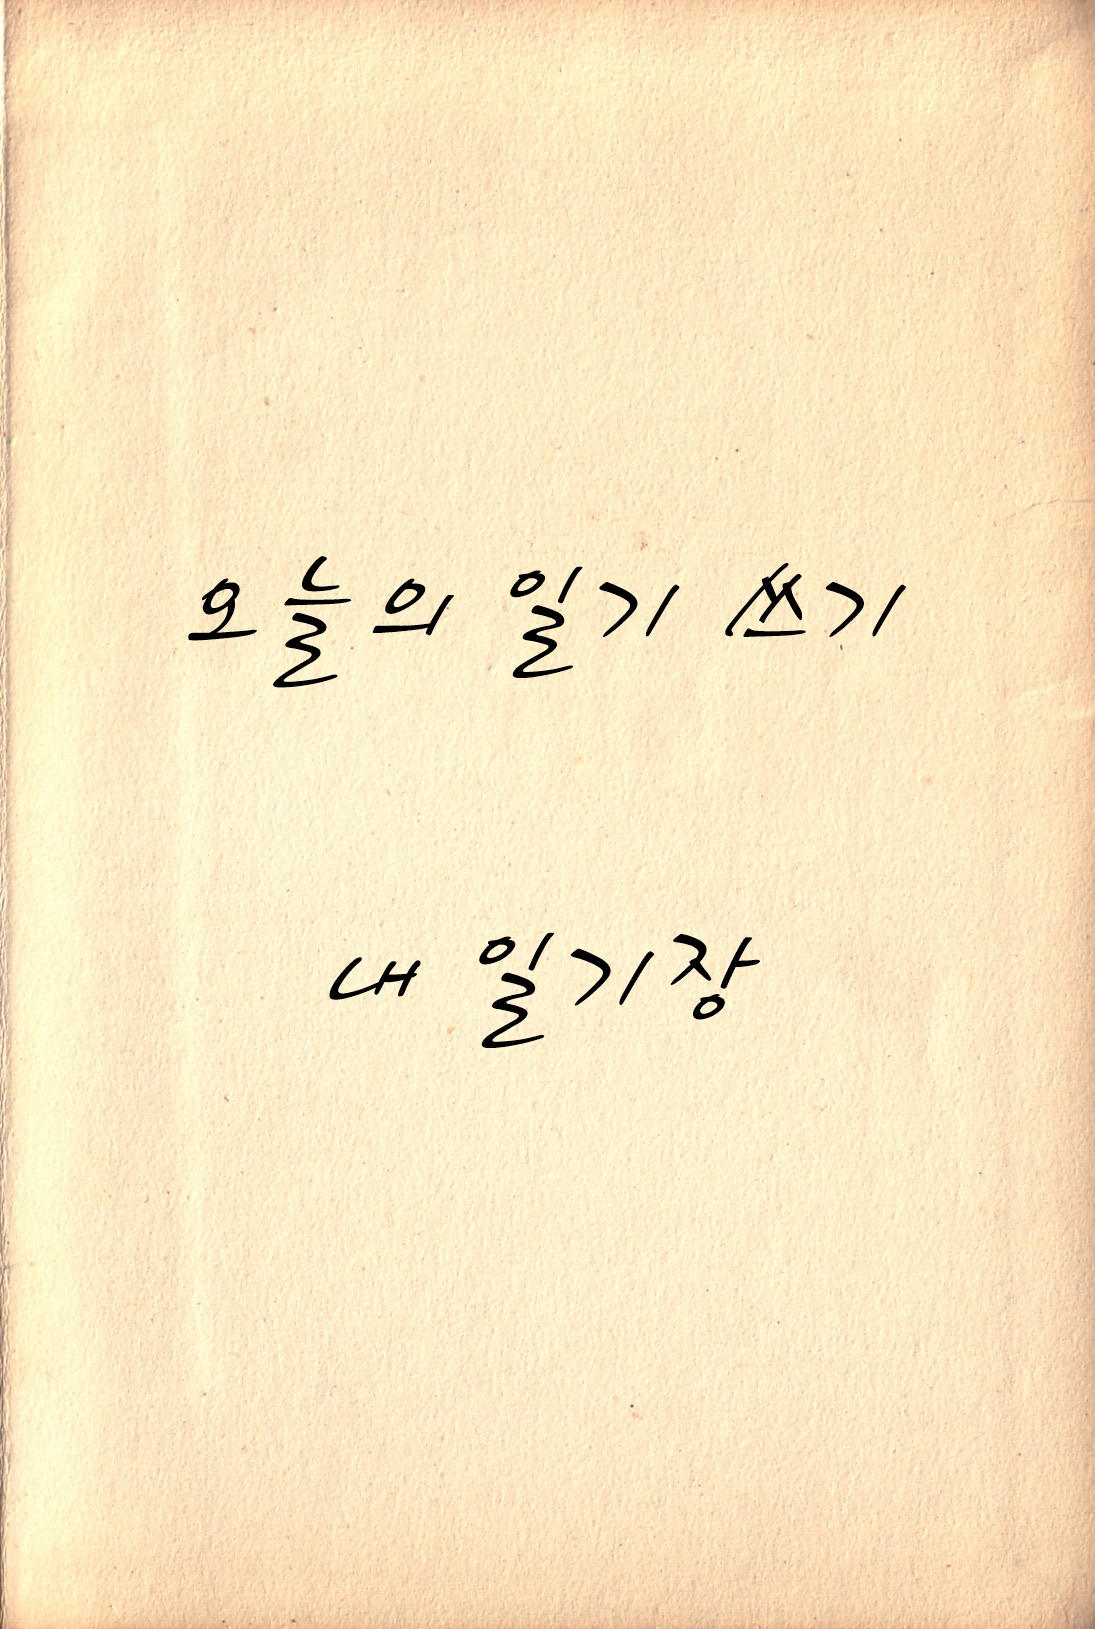 오늘의 일기 쓰기
내 일기장